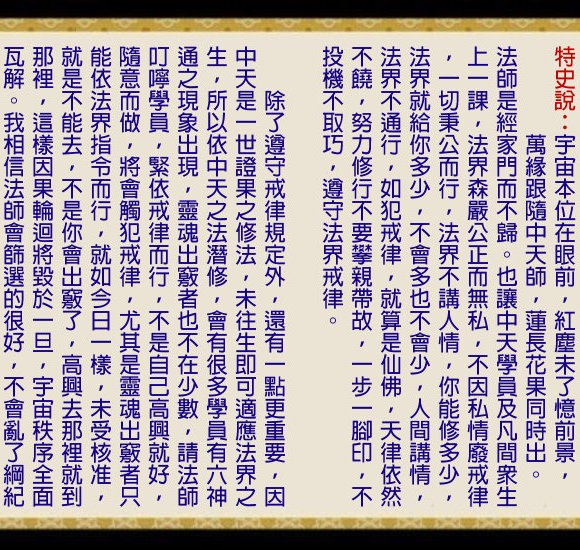 特史說：宇宙本位在眼前，紅塵未了憶前景，
萬緣跟隨中天師，蓮長花果同時出。
法師是經家門而不歸。也讓中天學員及凡間眾生
上一課，法界森嚴公正而無私，不因私情廢戒律
，一切秉公而行，法界不講人情，你能修多少，
法界就給你多少，不會多也不會少，人間講情，
法界不通行，如犯戒律，就算是仙佛，天律依然
不饒，努力修行不要攀親帶故，一步一腳印，不
投機不取巧，遵守法界戒律。
除了遵守戒律規定外，還有一點更重要，因
中天是一世證果之修法，未往生即可適應法界之
生，所以依中天之法潛修，會有很多學員有六神
通之現象出現，靈魂出竅者也不在少數，請法師
叮嚀學員，緊依戒律而行，不是自己高興就好，
隨意而做，將會觸犯戒律，尤其是靈魂出竅者只
能依法界指令而行，就如今日一樣，未受核准，
就是不能去，不是你會出竅了，高興去那裡就到
那裡，這樣因果輪迴將毀於一旦，宇宙秩序全面
瓦解。我相信法師會篩選的很好，不會亂了綱紀